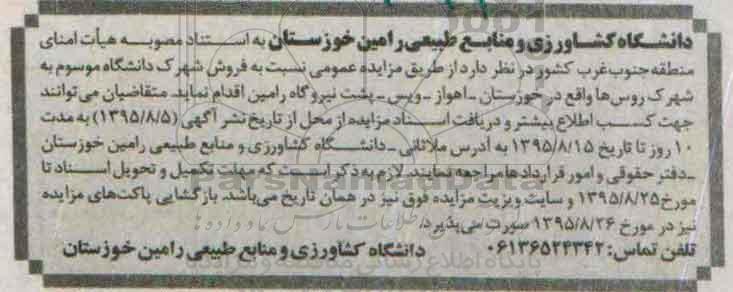 دانشگاه کشاورزی و منابع طبیعی رامین خوزستان به استناد مصوبه هیأت امنای
منطقه جنوب غرب کشور در نظر دارد از طریق مزایده عمومی نسبت به فروش شهرک دانشگاه موسوم به
شهرک روس‌ها واقع در خوزستان - اهواز - ویس - پشت نیروگاه رامین اقدام نماید. متقاضیان می‌توانند
جهت کسب اطلاع بیشتر و دریافت اسناد مزایده از محل از تاریخ نشر آگهی (۱۳۹۵/۸/۵) به مدت
۱۰ روز تا تاریخ ۱۳۹۵/۸/۱۵ به آدرس ملاثانی - دانشگاه کشاورزی و منابع طبیعی رامین خوزستان
- دفتر حقوقی و امور قراردادها مراجعه نمایند. لازم به ذکر است که مهلت تکمیل و تحویل اسناد تا
مورخ ۱۳۹۵/۸/۲۵ و سایت ویزیت مزایده فوق نیز در همان تاریخ می‌باشد. بازگشایی پاکت‌های مزایده
نیز در مورخ ۱۳۹۵/۸/۲۶ صورت می‌پذیرد.
تلفن تماس: ۰۶۱۳۶۵۲۴۳۴۲ دانشگاه کشاورزی و منابع طبیعی رامین خوزستان
ParsNamadData
پایگاه اطلاع رسانی مناقصه و مزایده